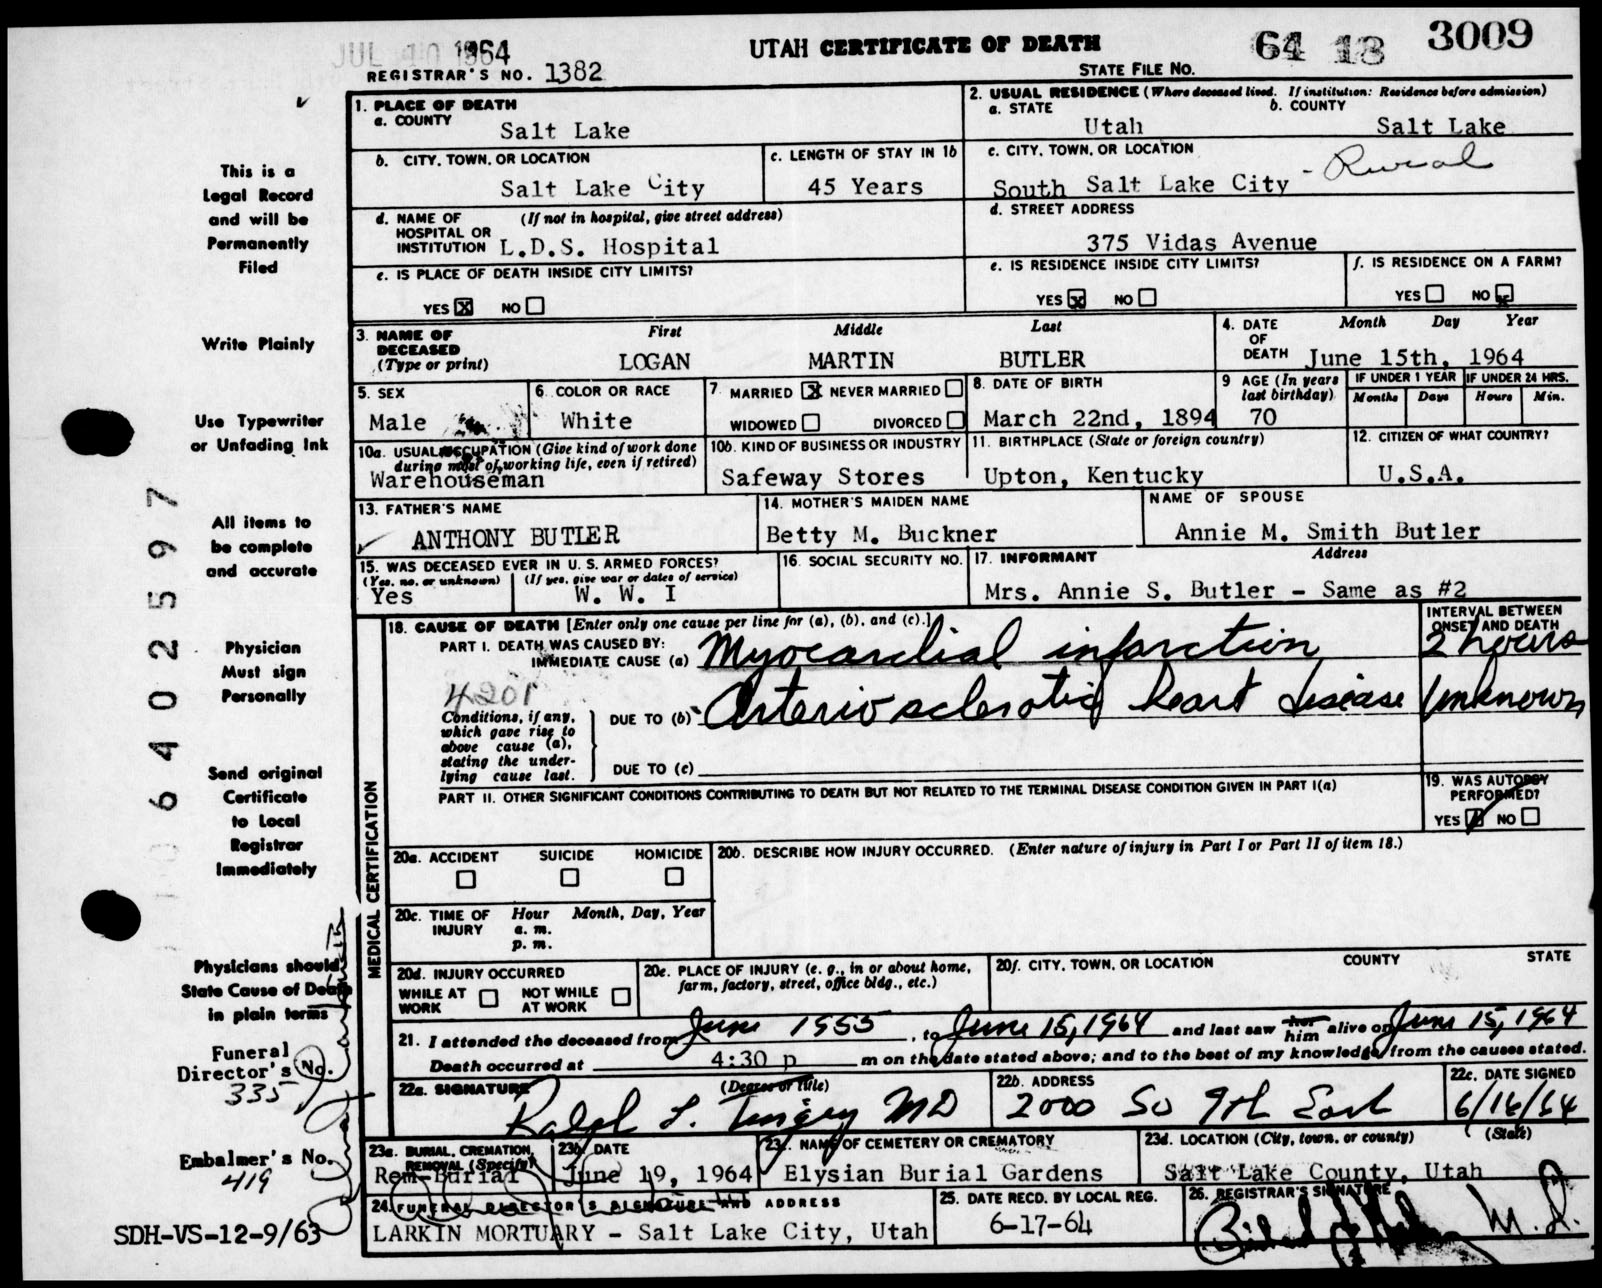 JUL 10 1964
UTAH CERTIFICATE OF DEATH
64 18 3009
REGISTRAR'S NO. 1382
STATE FILE NO.
1. PLACE OF DEATH
a. COUNTY
Salt Lake
2. USUAL RESIDENCE (Where deceased lived. If institution: Residence before admission)
a. STATE
Utah
b. COUNTY
Salt Lake
b. CITY, TOWN, OR LOCATION
Salt Lake City
c. LENGTH OF STAY IN 1b
45 Years
c. CITY, TOWN, OR LOCATION
South Salt Lake City - Rural
d. NAME OF HOSPITAL OR INSTITUTION
(If not in hospital, give street address)
L.D.S. Hospital
d. STREET ADDRESS
375 Vidas Avenue
e. IS PLACE OF DEATH INSIDE CITY LIMITS?
YES X NO
e. IS RESIDENCE INSIDE CITY LIMITS?
YES X NO
f. IS RESIDENCE ON A FARM?
YES NO X
3. NAME OF DECEASED (Type or print)
First Middle Last
LOGAN MARTIN BUTLER
4. DATE OF DEATH
Month Day Year
June 15th, 1964
5. SEX
Male
6. COLOR OR RACE
White
7. MARRIED X NEVER MARRIED
WIDOWED DIVORCED
8. DATE OF BIRTH
March 22nd, 1894
9 AGE (In years last birthday)
70
IF UNDER 1 YEAR
Months Days
IF UNDER 24 HRS.
Hours Min.
10a. USUAL OCCUPATION (Give kind of work done during most of working life, even if retired)
Warehouseman
10b. KIND OF BUSINESS OR INDUSTRY
Safeway Stores
11. BIRTHPLACE (State or foreign country)
Upton, Kentucky
12. CITIZEN OF WHAT COUNTRY?
U.S.A.
13. FATHER'S NAME
ANTHONY BUTLER
14. MOTHER'S MAIDEN NAME
Betty M. Buckner
NAME OF SPOUSE
Annie M. Smith Butler
15. WAS DECEASED EVER IN U. S. ARMED FORCES?
(Yes, no, or unknown) (If yes, give war or dates of service)
Yes W. W. I
16. SOCIAL SECURITY NO.
17. INFORMANT Address
Mrs. Annie S. Butler - Same as #2
MEDICAL CERTIFICATION
18. CAUSE OF DEATH [Enter only one cause per line for (a), (b), and (c).]
INTERVAL BETWEEN ONSET AND DEATH
PART I. DEATH WAS CAUSED BY:
IMMEDIATE CAUSE (a) Myocardial infarction 2 hours
4201
Conditions, if any, which gave rise to above cause (a), stating the underlying cause last.
DUE TO (b) Arteriosclerotic heart disease Unknown
DUE TO (c)
PART II. OTHER SIGNIFICANT CONDITIONS CONTRIBUTING TO DEATH BUT NOT RELATED TO THE TERMINAL DISEASE CONDITION GIVEN IN PART I(a)
19. WAS AUTOPSY PERFORMED?
YES NO
20a. ACCIDENT SUICIDE HOMICIDE
20b. DESCRIBE HOW INJURY OCCURRED. (Enter nature of injury in Part I or Part II of item 18.)
20c. TIME OF INJURY
Hour Month, Day, Year
a. m.
p. m.
20d. INJURY OCCURRED
WHILE AT WORK NOT WHILE AT WORK
20e. PLACE OF INJURY (e. g., in or about home, farm, factory, street, office bldg., etc.)
20f. CITY, TOWN, OR LOCATION COUNTY STATE
21. I attended the deceased from June 1955, to June 15, 1964 and last saw her him alive on June 15, 1964
Death occurred at 4:30 p m on the date stated above; and to the best of my knowledge, from the causes stated.
22a. SIGNATURE (Degree or title)
Ralph L. Tingey MD
22b. ADDRESS
2000 So 9th East
22c. DATE SIGNED
6/16/64
23a. BURIAL, CREMATION, REMOVAL (Specify)
Rem-Burial
23b. DATE
June 19, 1964
23c. NAME OF CEMETERY OR CREMATORY
Elysian Burial Gardens
23d. LOCATION (City, town, or county) (State)
Salt Lake County, Utah
24. FUNERAL DIRECTOR'S SIGNATURE AND ADDRESS
LARKIN MORTUARY - Salt Lake City, Utah
25. DATE RECD. BY LOCAL REG.
6-17-64
26. REGISTRAR'S SIGNATURE
M.D.
This is a
Legal Record
and will be
Permanently
Filed
Write Plainly
Use Typewriter
or Unfading Ink
All items to
be complete
and accurate
Physician
Must sign
Personally
Send original
Certificate
to Local
Registrar
Immediately
Physicians should
State Cause of Death
in plain terms
Funeral
Director's No.
335
Embalmer's No.
419
SDH-VS-12-9/63
6402597